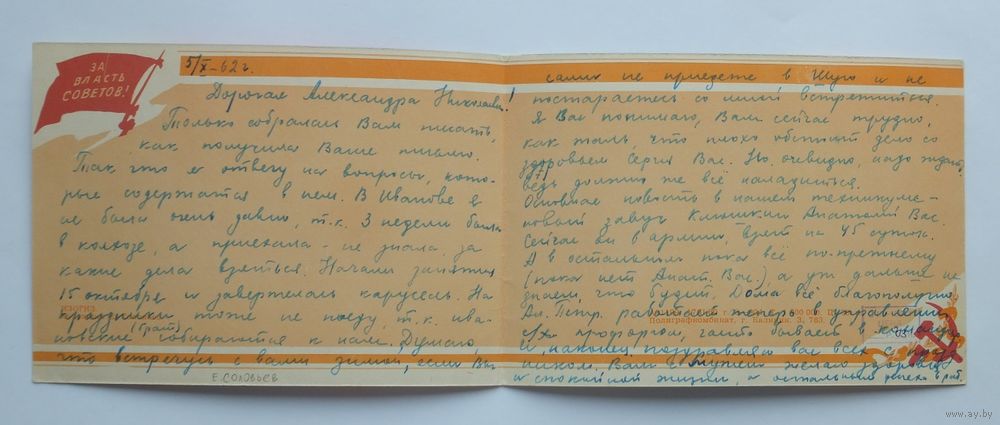 ЗА
ВЛАСТЬ
СОВЕТОВ!
5/X-62 г.
Дорогая Александра Николаевна!
Только собралась Вам писать,
как получила Ваше письмо.
Так что я отвечу на вопросы, кото-
рые содержатся в нем. В Иванове я
не была очень давно, т.к. 3 недели была
в колхозе, а приехала - не знала, за
какие дела взяться. Начали занятия
15 октября и завертелась карусель. На
праздники тоже не поеду, т.к. ива-
новские (брат) собираются к нам. Думаю,
что встречусь с вами зимой, если Вы
Е. СОЛОВЬЕВ
сами не приедете в Шую и не
постараетесь со мной встретиться.
Я Вас понимаю, Вам сейчас трудно,
как жаль, что плохо обстоит дело со
здоровьем Сергея Вас. Но, очевидно, надо ждать,
ведь должно же всё наладиться.
Основная новость в нашем техникуме -
новый завуч Клюшкин Анатолий Вас.
Сейчас он в армии, взят на 45 суток.
А в остальном пока всё по-прежнему
(пока нет Анат. Вас.) а уж дальше не
знаем, что будет. Дома всё благополучно
Ал. Петр. работает теперь в управлении
с/х. профоргом, часто бывает в
И, наконец, поздравляю вас всех с празд
ником. Вам с мужем желаю здоровья
и спокойной жизни, и остальным успеха в раб.
Полиграфкомбинат, г. Калинин. З. 763.
www.ay.by